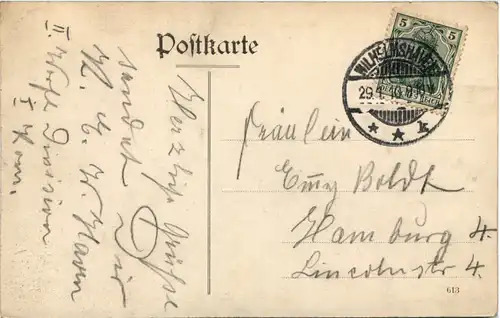 Postkarte
5 5
WILHELMSHAVEN
29.4.10.
* * k
Fräulein
Emy Boldt
Hamburg 4.
Lincolnstr 4.
613
Herzliche Grüße
sendet Dir
II.
Division